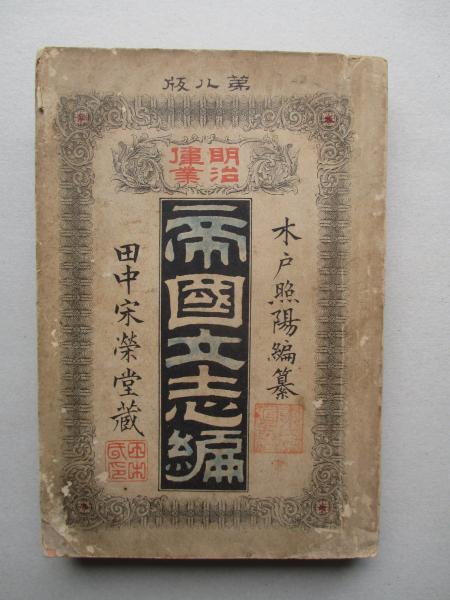 第八版
明治
偉業
木戸照陽編纂
帝國立志編
田中宋榮堂藏